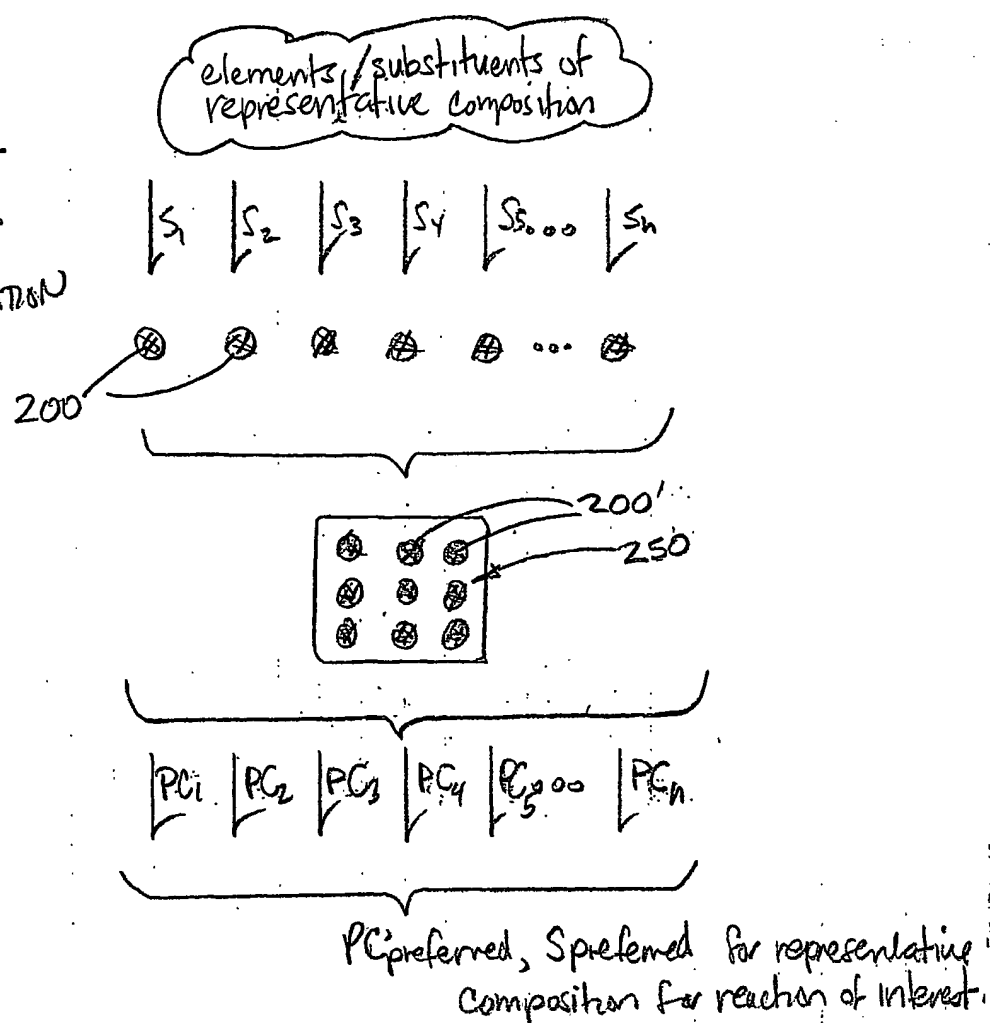 elements/substituents of
representative composition
S1 S2 S3 S4 S5... Sn
...
200
200'
250
PC1 PC2 PC3 PC4 PC5... PCn
PCpreferred, Spreferred for representative
composition for reaction of interest.